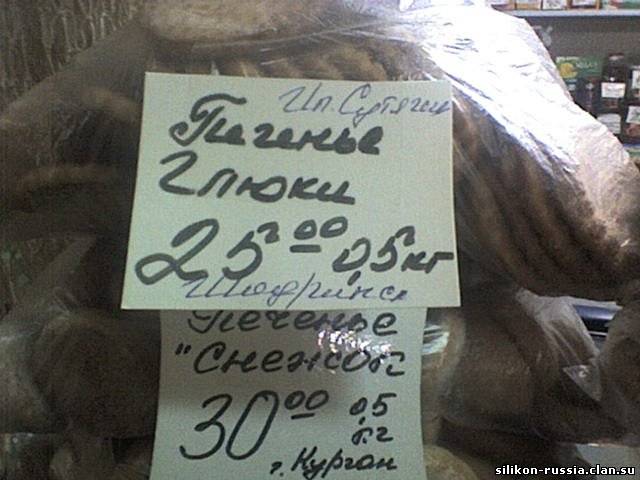 Ип. Сутягин
Печенье
Глюки
25 00 0,5 кг
Шадринск
Печенье
"Снежок"
30 00 0,5
г. Курган
silikon-russia.clan.su